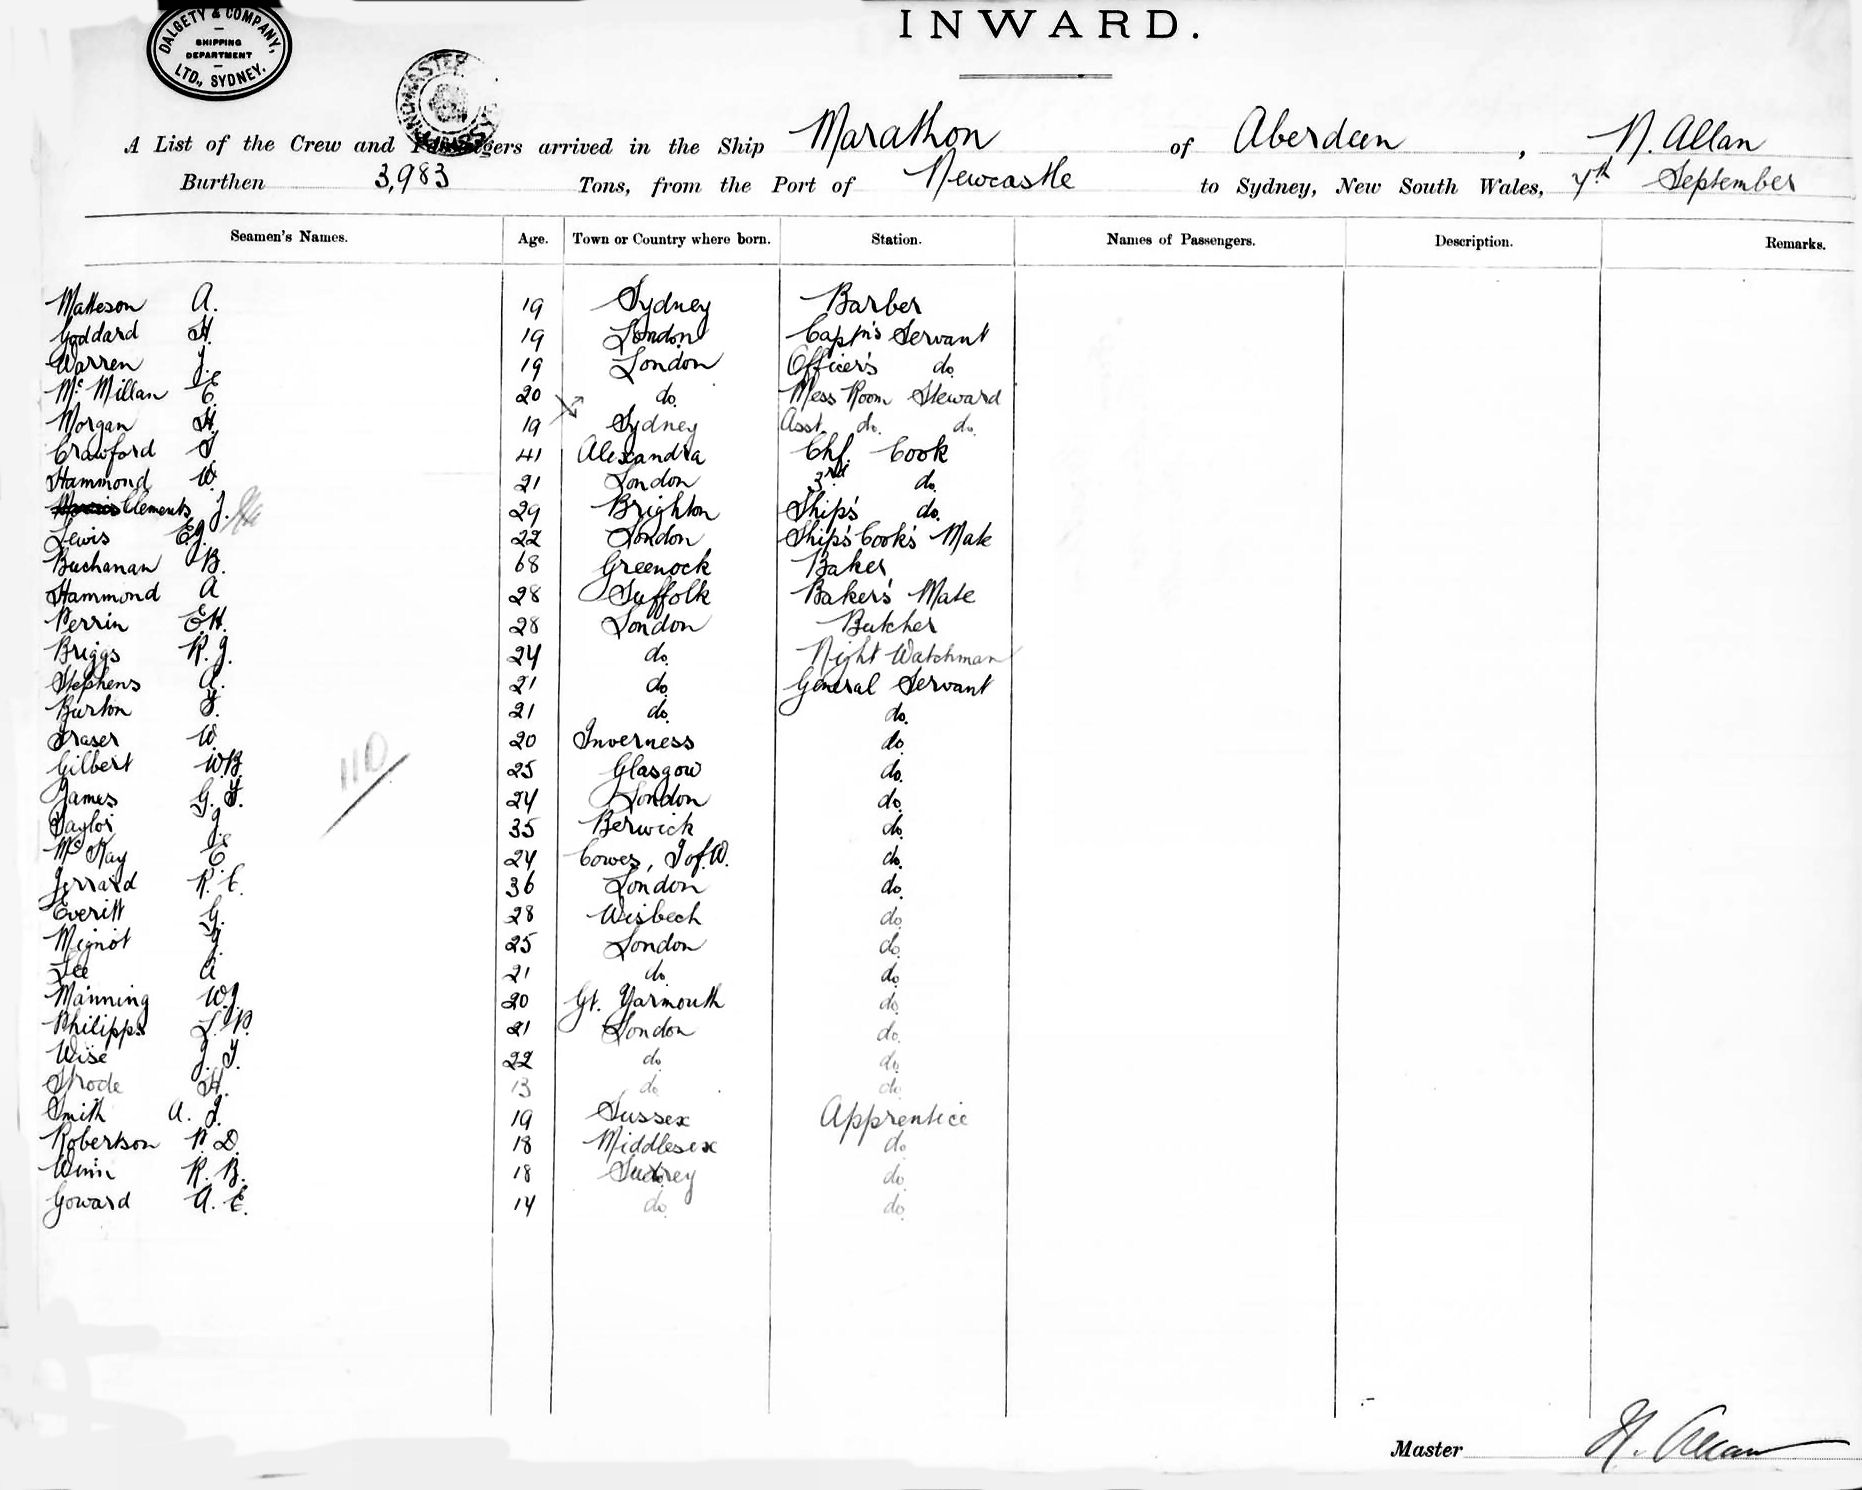 DALGETY & COMPANY,
SHIPPING
DEPARTMENT
LTD., SYDNEY.
INWARD.
A List of the Crew and Passengers arrived in the Ship Marathon of Aberdeen, N. Allan
Burthen 3,983 Tons, from the Port of Newcastle to Sydney, New South Wales, 7th September
Seamen's Names. Age. Town or Country where born. Station. Names of Passengers. Description. Remarks.
Matteson A. 19 Sydney Barber
Goddard H. 19 London Captn's Servant
Warren J. 19 London Officer's do.
McMillan E. 20 do. Mess Room Steward
Morgan H. 19 Sydney Asst. do. do.
Crawford 41 Alexandra Chf. Cook
Hammond W. 21 London 3rd do.
Clements J. 29 Brighton Ship's do.
Lewis E.J. 22 London Ship's Cook's Mate
Buchanan B. 68 Greenock Baker
Hammond A 28 Suffolk Baker's Mate
Perrin E.H. 28 London Butcher
Briggs R. J. 24 do. Night Watchman
Stephens A. 21 do. General Servant
Burton F. 21 do. do.
Fraser W. 20 Inverness do.
Gilbert W.B. 25 Glasgow do.
110
James G. F. 24 London do.
Taylor J. 35 Berwick do.
McKay E. 24 Cowes, I of W. do.
Jerrard R. C. 36 London do.
Everitt G. 28 Wisbech do.
Mignot J. 25 London do.
Lee A 21 do. do.
Manning W.J. 20 Gt. Yarmouth do.
Philipps L. P. 21 London do.
Wise J. F. 22 do. do.
Strode H. 13 do. do.
Smith A. J. 19 Sussex Apprentice
Robertson P. D. 18 Middlesex do.
Winn R. B. 18 Surrey do.
Goward A. E. 14 do. do.
Master N. Allan